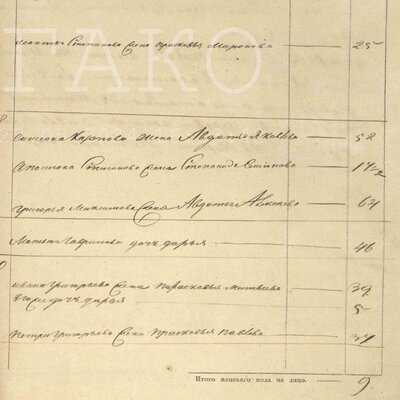 ГАКО
Степанова жена Прасковья Миронова 25
Симиона Карпова жена Авдотья Яковлева 58
Степанова жена Степанида Семионова 17½
Григорья Максимова жена Авдотья 64
Матвея Гаврилова дочь дарья 46
ивана григорьева жена Парасковья Матвеева 39
дочь дарья 5
Петра григорьева жена Прасковья Павлова 34
Итого женскаго пола на лицо. 9